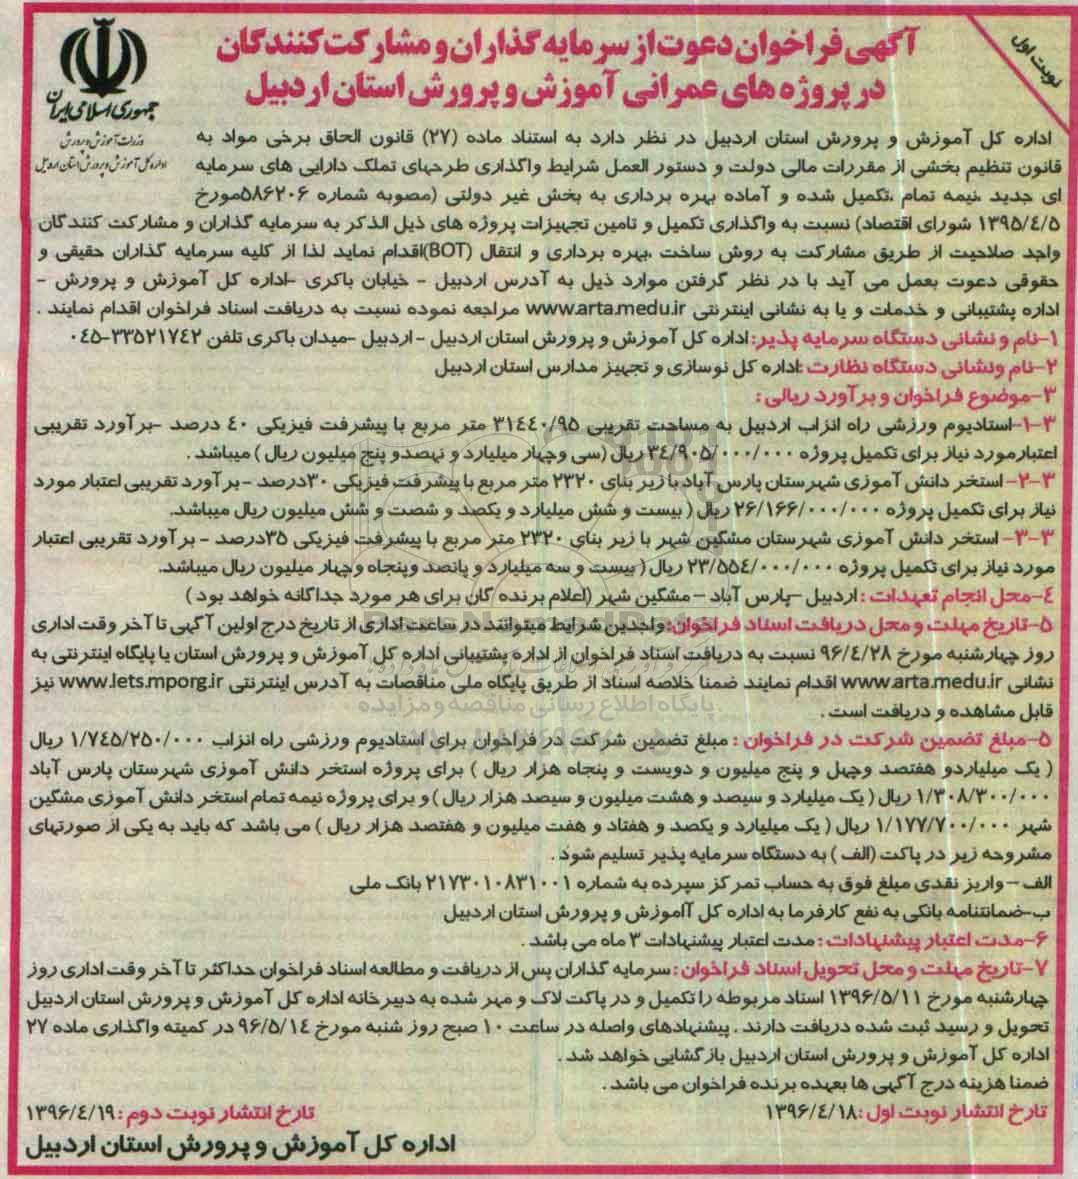 نوبت اول
آگهی فراخوان دعوت از سرمایه گذاران و مشارکت کنندگان
در پروژه های عمرانی آموزش و پرورش استان اردبیل
جمهوری اسلامی ایران
وزارت آموزش و پرورش
اداره کل آموزش و پرورش استان اردبیل
اداره کل آموزش و پرورش استان اردبیل در نظر دارد به استناد ماده (۲۷) قانون الحاق برخی مواد به
قانون تنظیم بخشی از مقررات مالی دولت و دستور العمل شرایط واگذاری طرحهای تملک دارایی های سرمایه
ای جدید ،نیمه تمام ،تکمیل شده و آماده بهره برداری به بخش غیر دولتی (مصوبه شماره ۵۸۶۲۰۶مورخ
۱۳۹۵/٤/۵ شورای اقتصاد) نسبت به واگذاری تکمیل و تامین تجهیزات پروژه های ذیل الذکر به سرمایه گذاران و مشارکت کنندگان
واجد صلاحیت از طریق مشارکت به روش ساخت ،بهره برداری و انتقال (BOT)اقدام نماید لذا از کلیه سرمایه گذاران حقیقی و
حقوقی دعوت بعمل می آید با در نظر گرفتن موارد ذیل به آدرس اردبیل - خیابان باکری -اداره کل آموزش و پرورش -
اداره پشتیبانی و خدمات و یا به نشانی اینترنتی www.arta.medu.ir مراجعه نموده نسبت به دریافت اسناد فراخوان اقدام نمایند .
۱-نام و نشانی دستگاه سرمایه پذیر: اداره کل آموزش و پرورش استان اردبیل - اردبیل -میدان باکری تلفن ۳۳۵۲۱۷٤۲-۰٤۵
۲-نام ونشانی دستگاه نظارت :اداره کل نوسازی و تجهیز مدارس استان اردبیل
۳-موضوع فراخوان و برآورد ریالی :
۳-۱-استادیوم ورزشی راه انزاب اردبیل به مساحت تقریبی ۳۱٤٤۰/۹۵ متر مربع با پیشرفت فیزیکی ٤۰ درصد -برآورد تقریبی
اعتبارمورد نیاز برای تکمیل پروژه ۳٤/۹۰۵/۰۰۰/۰۰۰ ریال (سی وچهار میلیارد و نهصدو پنج میلیون ریال ) میباشد .
۳-۲- استخر دانش آموزی شهرستان پارس آباد با زیر بنای ۲۳۲۰ متر مربع با پیشرفت فیزیکی ۳۰درصد - برآورد تقریبی اعتبار مورد
نیاز برای تکمیل پروژه ۲۶/۱۶۶/۰۰۰/۰۰۰ ریال ( بیست و شش میلیارد و یکصد و شصت و شش میلیون ریال میباشد.
۳-۳- استخر دانش آموزی شهرستان مشگین شهر با زیر بنای ۲۳۲۰ متر مربع با پیشرفت فیزیکی ۳۵درصد - برآورد تقریبی اعتبار
مورد نیاز برای تکمیل پروژه ۲۳/۵۵٤/۰۰۰/۰۰۰ ریال ( بیست و سه میلیارد و پانصد وپنجاه وچهار میلیون ریال میباشد.
٤-محل انجام تعهدات : اردبیل -پارس آباد - مشگین شهر (اعلام برنده گان برای هر مورد جداگانه خواهد بود )
۵-تاریخ مهلت و محل دریافت اسناد فراخوان: واجدین شرایط میتوانند در ساعت اداری از تاریخ درج اولین آگهی تا آخر وقت اداری
روز چهارشنبه مورخ ۹۶/٤/۲۸ نسبت به دریافت اسناد فراخوان از اداره پشتیبانی اداره کل آموزش و پرورش استان یا پایگاه اینترنتی به
نشانی www.arta.medu.ir اقدام نمایند ضمنا خلاصه اسناد از طریق پایگاه ملی مناقصات به آدرس اینترنتی www.iets.mporg.ir نیز
قابل مشاهده و دریافت است .
۵-مبلغ تضمین شرکت در فراخوان : مبلغ تضمین شرکت در فراخوان برای استادیوم ورزشی راه انزاب ۱/۷٤۵/۲۵۰/۰۰۰ ریال
( یک میلیاردو هفتصد وچهل و پنج میلیون و دویست و پنجاه هزار ریال ) برای پروژه استخر دانش آموزی شهرستان پارس آباد
۱/۳۰۸/۳۰۰/۰۰۰ ریال ( یک میلیارد و سیصد و هشت میلیون و سیصد هزار ریال ) و برای پروژه نیمه تمام استخر دانش آموزی مشگین
شهر ۱/۱۷۷/۷۰۰/۰۰۰ ریال ( یک میلیارد و یکصد و هفتاد و هفت میلیون و هفتصد هزار ریال ) می باشد که باید به یکی از صورتهای
مشروحه زیر در پاکت (الف ) به دستگاه سرمایه پذیر تسلیم شود .
الف - واریز نقدی مبلغ فوق به حساب تمرکز سپرده به شماره ۲۱۷۳۰۱۰۸۳۱۰۰۱ بانک ملی
ب-ضمانتنامه بانکی به نفع کارفرما به اداره کل آاموزش و پرورش استان اردبیل
۶-مدت اعتبار پیشنهادات : مدت اعتبار پیشنهادات ۳ ماه می باشد .
۷-تاریخ مهلت و محل تحویل اسناد فراخوان : سرمایه گذاران پس از دریافت و مطالعه اسناد فراخوان حداکثر تا آخر وقت اداری روز
چهارشنبه مورخ ۱۳۹۶/۵/۱۱ اسناد مربوطه را تکمیل و در پاکت لاک و مهر شده به دبیرخانه اداره کل آموزش و پرورش استان اردبیل
تحویل و رسید ثبت شده دریافت دارند . پیشنهادهای واصله در ساعت ۱۰ صبح روز شنبه مورخ ۹۶/۵/۱٤ در کمیته واگذاری ماده ۲۷
اداره کل آموزش و پرورش استان اردبیل بازگشایی خواهد شد .
ضمنا هزینه درج آگهی ها بعهده برنده فراخوان می باشد .
تاریخ انتشار نوبت اول : ۱۳۹۶/٤/۱۸
تاریخ انتشار نوبت دوم : ۱۳۹۶/٤/۱۹
اداره کل آموزش و پرورش استان اردبیل
پایگاه اطلاع رسانی مناقصه و مزایده